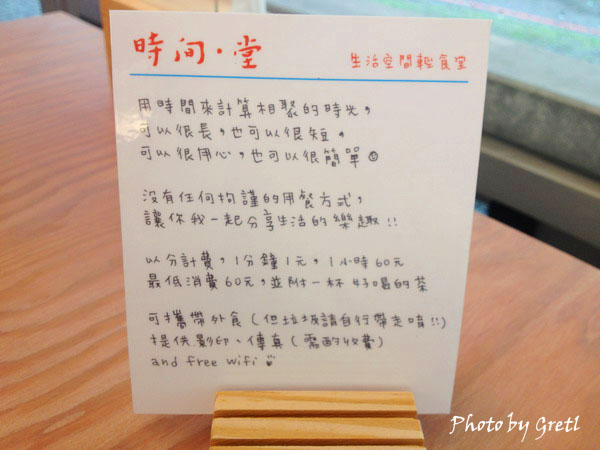 時间·堂
生活空間輕食堂
用時間來計算相聚的時光，
可以很長，也可以很短。
可以很用心，也可以很簡單☺
沒有任何拘謹的用餐方式，
讓你我一起分享生活的樂趣!!
以分計費，1分鐘1元，1小時60元
最低消費60元，並附一杯好喝的茶
可攜帶外食(但垃圾請自行帶走唷!!)
提供影印、傳真(需酌收費)
and free wifi
Photo by Gretl